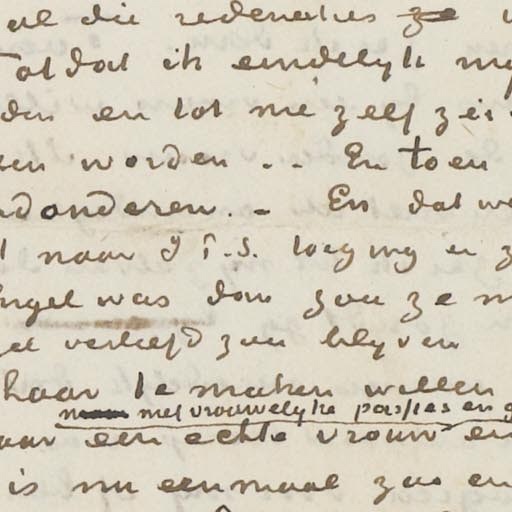 al die redenaties ze
Totdat ik eindelyk my
den en tot me zelf zei
en worden .. En toen
donderen .. En dat
naar I T.S. toeging en z
ngel was dan zou ze
verliefd zou blyven
haar te maken willen
met vrouwelyke passies en
aar een echte vrouw en
is nu eenmaal zoo en